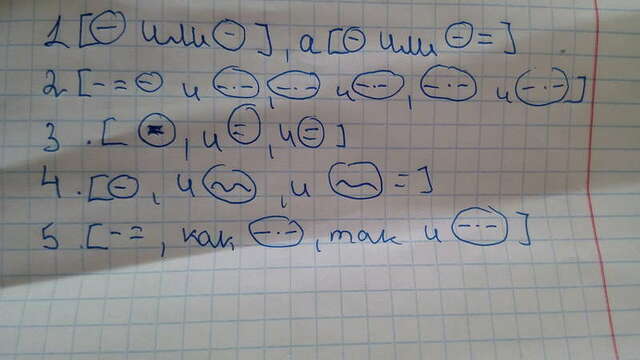 1 [⊖ или ⊖], а [⊖ или ⊖ =]
2 [- = ⊖ и (-·-), (-·-) и (-·-), (-·-) и (-·-)]
3. [⊖, и (=), и (=)]
4. [⊖, и (~~), и (~~) =]
5. [- =, как (-·-), так и (-·-)]